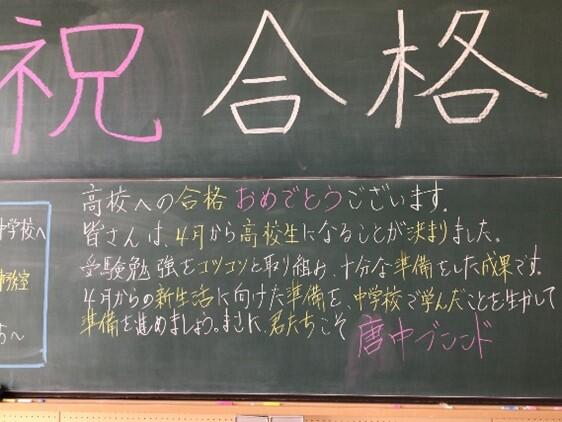 祝 合格
高校への合格おめでとうございます。
皆さんは、4月から高校生になることが決まりました。
受験勉強をコツコツと取り組み、十分な準備をした成果です。
4月からの新生活に向けた準備を、中学校で学んだことを生かして
準備を進めましょう。まさに、君たちこそ 唐中ブランド
中学校へ
教室
ちへ